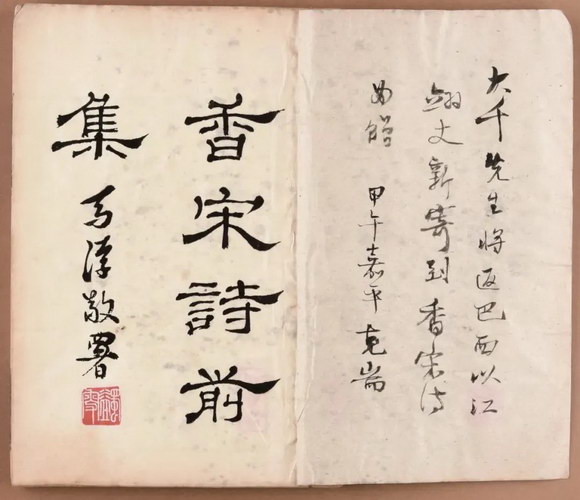 大千先生將返巴西以江
翊丈新寄到香宋詩
贈 甲午嘉平 克耑
香宋詩前
集
馬浮敬署
蠲叟